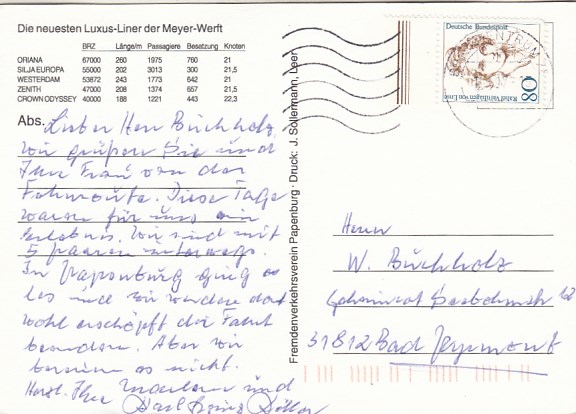 Die neuesten Luxus-Liner der Meyer-Werft
BRZ Länge/m Passagiere Besatzung Knoten
ORIANA 67000 260 1975 760 21
SILJA EUROPA 55000 202 3013 300 21,5
WESTERDAM 53872 243 1773 642 21
ZENITH 47000 208 1374 657 21,5
CROWN ODYSSEY 40000 188 1221 443 22,3
Abs.
Lieber Herr Buchholz,
wir grüßen Sie und
Ihre Frau von der
Fahrroute. Diese Tage
waren für uns ein
Erlebnis. Wir sind mit
5 Paaren unterwegs.
In Papenburg ging es
los und wir werden dort
wohl erschöpft die Fahrt
beenden. Aber wir
bereuen es nicht.
Herzl. Ihre und
Karl Heinz
Fremdenverkehrsverein Papenburg · Druck: J. Sollermann, Leer
Deutsche Bundespost
80
Rahel Varnhagen von Ense
ZENTRUM
Herrn
W. Buchholz
31812 Bad Pyrmont